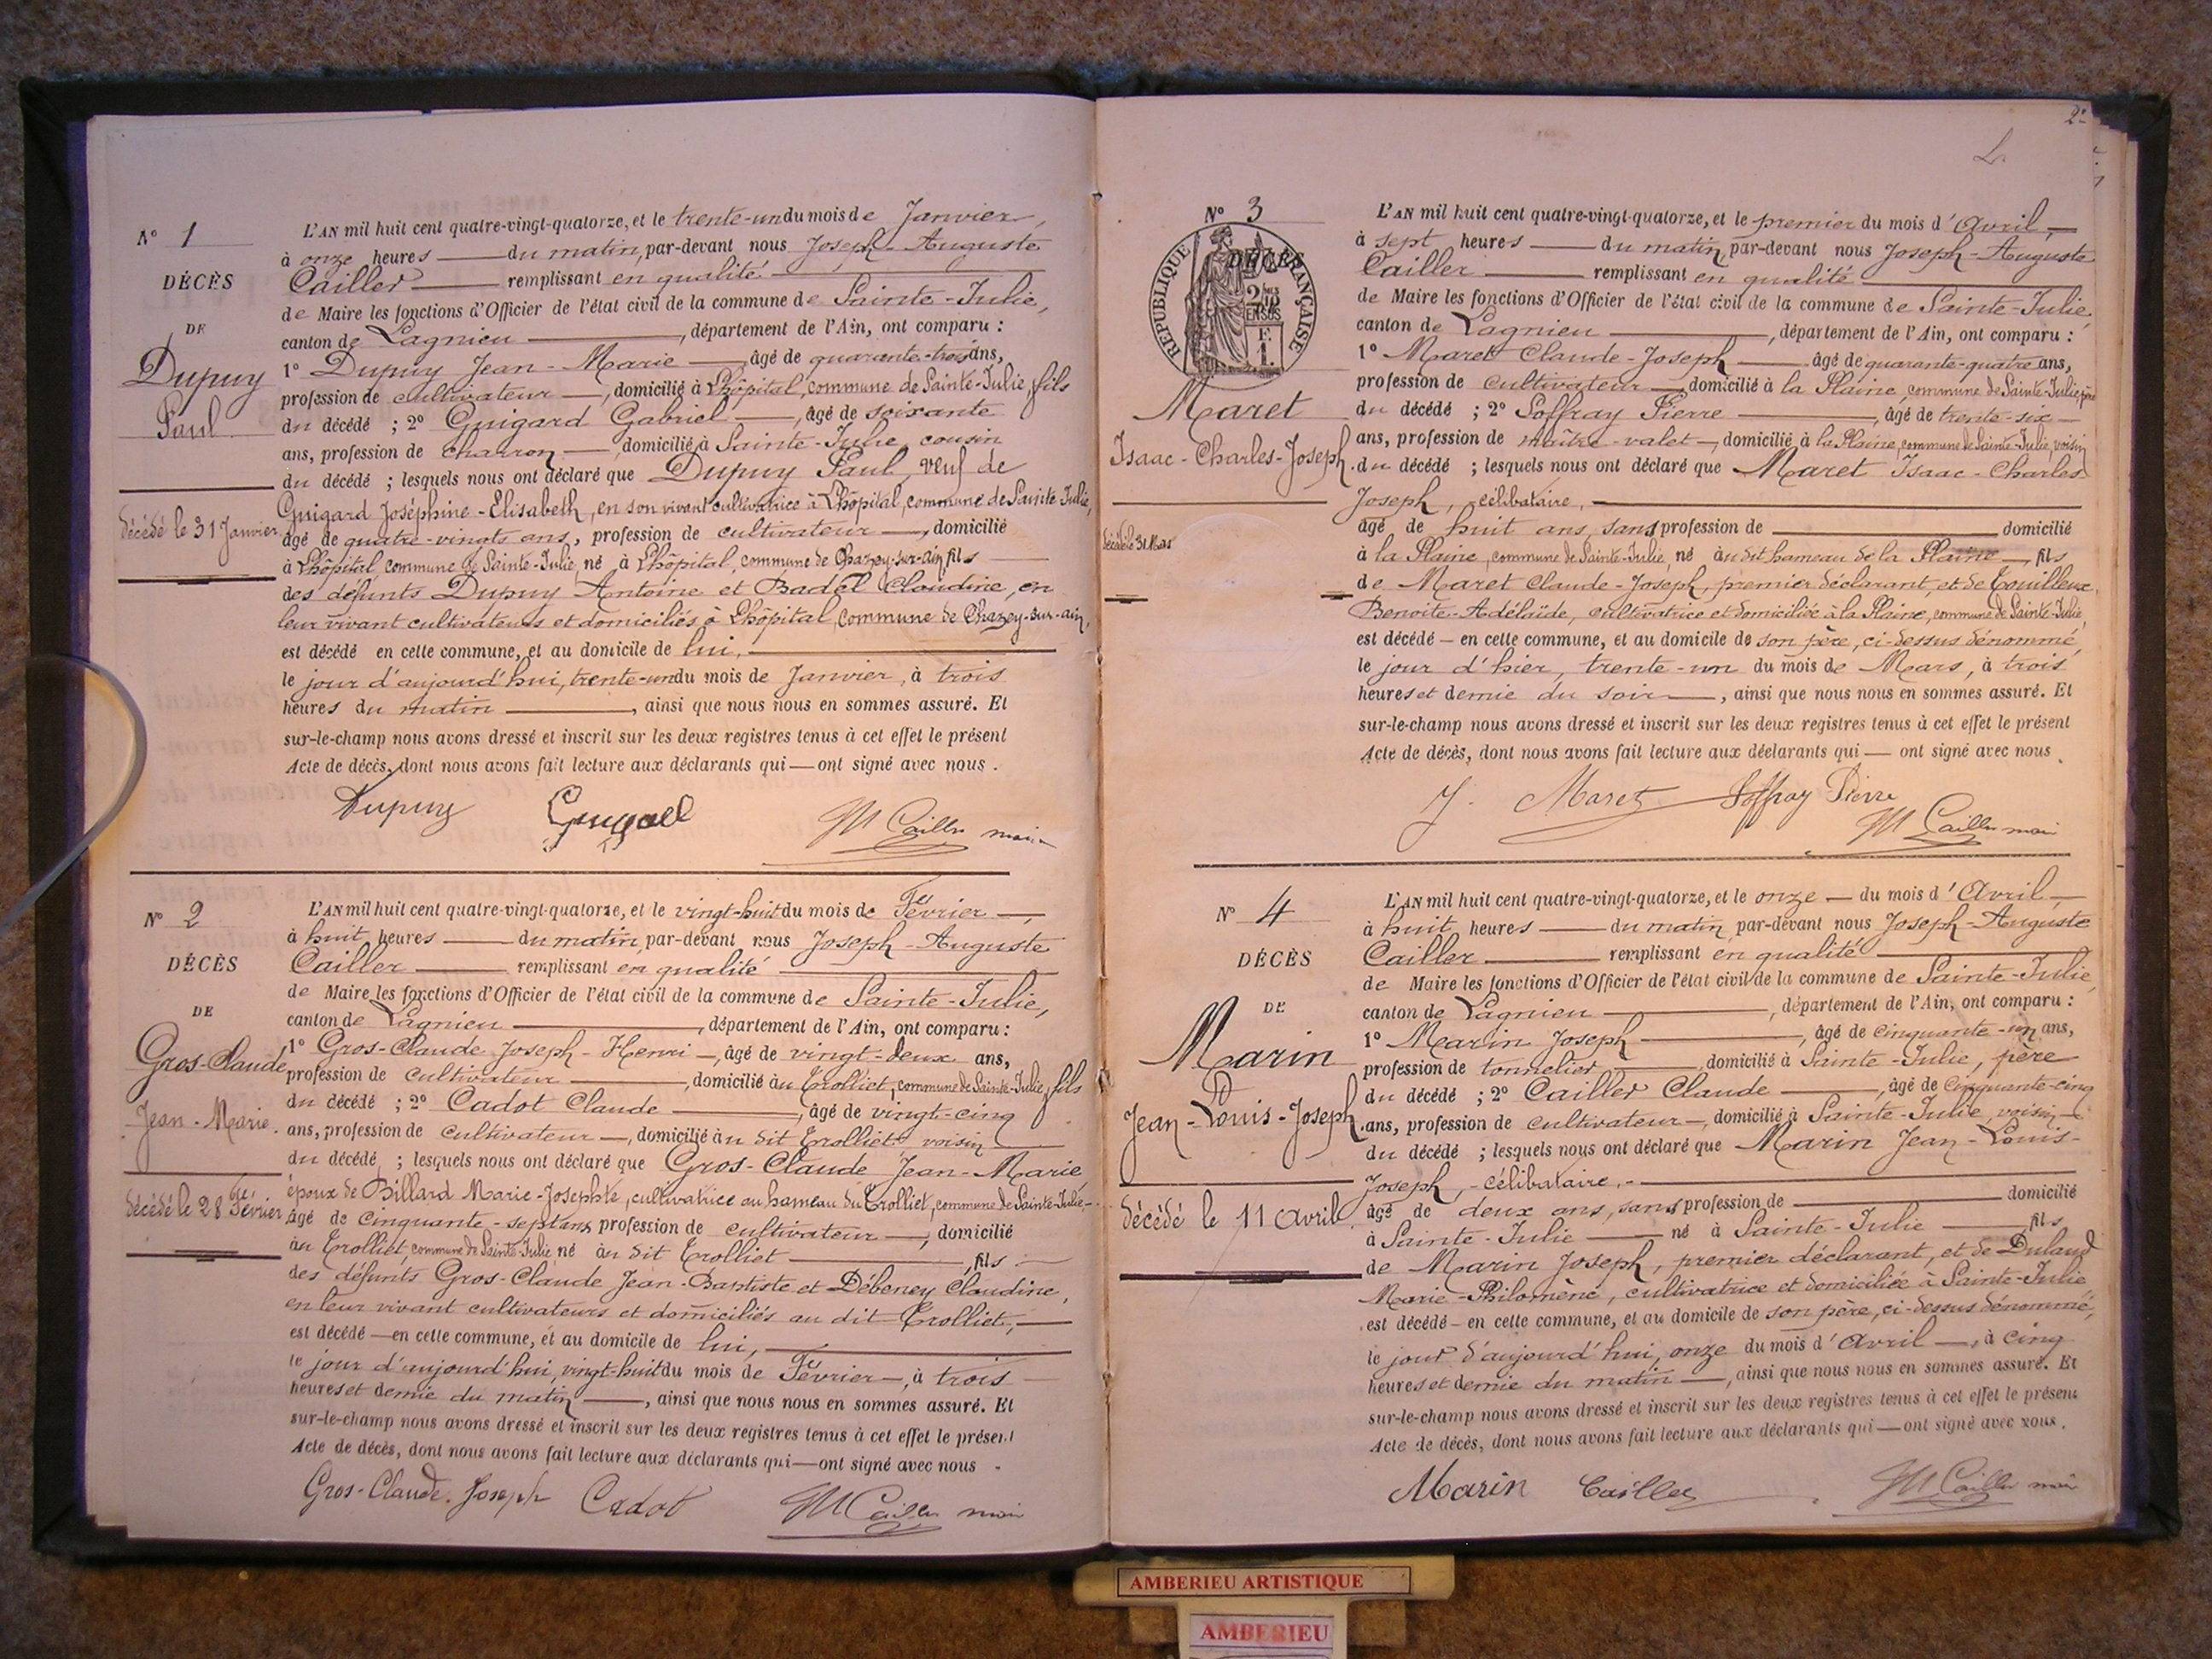 N° 1
DÉCÈS
DE
Dupuy
Paul
décédé le 31 Janvier
L'AN mil huit cent quatre-vingt-quatorze, et le trente-un du mois de Janvier,
à onze heures — du matin, par-devant nous Joseph-Auguste
Cailler — remplissant en qualité —
de Maire les fonctions d'Officier de l'état civil de la commune de Sainte-Julie,
canton de Lagnieu —, département de l'Ain, ont comparu :
1° Dupuy Jean-Marie — âgé de quarante-trois ans,
profession de cultivateur —, domicilié à Lhôpital, commune de Sainte-Julie, fils
du décédé ; 2° Guigard Gabriel —, âgé de soixante
ans, profession de charron —, domicilié à Sainte-Julie, cousin
du décédé ; lesquels nous ont déclaré que Dupuy Paul, veuf de
Guigard Joséphine-Elisabeth, en son vivant cultivatrice à Lhôpital, commune de Sainte-Julie,
âgé de quatre-vingts ans, profession de cultivateur —, domicilié
à Lhôpital, commune de Sainte-Julie, né à Lhôpital, commune de Chazey-sur-Ain, fils —
des défunts Dupuy Antoine et Badel Claudine, en
leur vivant cultivateurs et domiciliés à Lhôpital, commune de Chazey-sur-ain,
est décédé en cette commune, et au domicile de lui, —
le jour d'aujourd'hui, trente-un du mois de Janvier, à trois
heures du matin —, ainsi que nous nous en sommes assuré. Et
sur-le-champ nous avons dressé et inscrit sur les deux registres tenus à cet effet le présent
Acte de décès, dont nous avons fait lecture aux déclarants qui — ont signé avec nous.
Dupuy Guigard Cailler maire
N° 2
DÉCÈS
DE
Gros-Claude
Jean-Marie.
décédé le 28 Février
L'AN mil huit cent quatre-vingt-quatorze, et le vingt-huit du mois de Février —,
à huit heures — du matin, par-devant nous Joseph-Auguste
Cailler — remplissant en qualité —
de Maire les fonctions d'Officier de l'état civil de la commune de Sainte-Julie,
canton de Lagnieu —, département de l'Ain, ont comparu :
1° Gros-Claude Joseph-Henri —, âgé de vingt-deux ans,
profession de cultivateur —, domicilié au Trolliet, commune de Sainte-Julie, fils
du décédé ; 2° Cadot Claude —, âgé de vingt-cinq
ans, profession de cultivateur —, domicilié au dit Trolliet, voisin
du décédé ; lesquels nous ont déclaré que Gros-Claude Jean-Marie
époux de Billard Marie-Josephte, cultivatrice au hameau du Trolliet, commune de Sainte-Julie,-
âgé de cinquante-sept ans, profession de cultivateur —, domicilié
au Trolliet, commune de Sainte-Julie né au dit Trolliet —, fils —
des défunts Gros-Claude Jean-Baptiste et Débeney Claudine,
en leur vivant cultivateurs et domiciliés au dit Trolliet, —
est décédé — en cette commune, et au domicile de lui, —
le jour d'aujourd'hui, vingt-huit du mois de Février —, à trois
heures et demie du matin —, ainsi que nous nous en sommes assuré. Et
sur-le-champ nous avons dressé et inscrit sur les deux registres tenus à cet effet le présent
Acte de décès, dont nous avons fait lecture aux déclarants qui — ont signé avec nous -
Gros-Claude. Joseph Cadot Cailler maire
2e
N° 3
DÉCÈS
RÉPUBLIQUE FRANÇAISE
Maret
Isaac-Charles-Joseph.
décédé le 31 Mars
L'AN mil huit cent quatre-vingt-quatorze, et le premier du mois d'Avril, —
à sept heures — du matin, par-devant nous Joseph-Auguste
Cailler — remplissant en qualité —
de Maire les fonctions d'Officier de l'état civil de la commune de Sainte-Julie,
canton de Lagnieu —, département de l'Ain, ont comparu :
1° Maret Claude-Joseph — âgé de quarante-quatre ans,
profession de cultivateur — domicilié à la Plaine, commune de Sainte-Julie, père
du décédé ; 2° Soffray Pierre —, âgé de trente-six —
ans, profession de maître-valet —, domicilié à la Plaine, commune de Sainte-Julie, voisin
du décédé ; lesquels nous ont déclaré que Maret Isaac-Charles
Joseph, célibataire, —
âgé de huit ans, sans profession de — domicilié
à la Plaine, commune de Sainte-Julie, né au dit hameau de la Plaine —, fils
de Maret Claude-Joseph, premier déclarant, et de Touilleux,
Benoîte-Adélaïde, cultivatrice et domiciliée à la Plaine, commune de Sainte-Julie,
est décédé — en cette commune, et au domicile de son père, ci-dessus dénommé,
le jour d'hier, trente-un du mois de Mars, à trois
heures et demie du soir —, ainsi que nous nous en sommes assuré. Et
sur-le-champ nous avons dressé et inscrit sur les deux registres tenus à cet effet le présent
Acte de décès, dont nous avons fait lecture aux déclarants qui — ont signé avec nous.
J. Maret Soffray Pierre Cailler maire
N° 4
DÉCÈS
DE
Marin
Jean-Louis-Joseph.
décédé le 11 avril
L'AN mil huit cent quatre-vingt-quatorze, et le onze — du mois d'Avril, —
à huit heures — du matin, par-devant nous Joseph-Auguste
Cailler — remplissant en qualité —
de Maire les fonctions d'Officier de l'état civil de la commune de Sainte-Julie,
canton de Lagnieu —, département de l'Ain, ont comparu :
1° Marin Joseph —, âgé de cinquante-un ans,
profession de tonnelier, domicilié à Sainte-Julie, père
du décédé ; 2° Cailler Claude —, âgé de cinquante-cinq
ans, profession de cultivateur —, domicilié à Sainte-Julie, voisin —
du décédé ; lesquels nous ont déclaré que Marin Jean-Louis-
Joseph, - célibataire, - —
âgé de deux ans, sans profession de — domicilié
à Sainte-Julie — né à Sainte-Julie — fils
de Marin Joseph, premier déclarant, et de Duland
Marie-Philomène, cultivatrice et domiciliée à Sainte-Julie
est décédé — en cette commune, et au domicile de son père, ci-dessus dénommé,
le jour d'aujourd'hui, onze du mois d'Avril —, à cinq
heures et demie du matin —, ainsi que nous nous en sommes assuré. Et
sur-le-champ nous avons dressé et inscrit sur les deux registres tenus à cet effet le présent
Acte de décès, dont nous avons fait lecture aux déclarants qui — ont signé avec nous.
Marin Cailler Cailler maire
AMBERIEU ARTISTIQUE
AMBERIEU